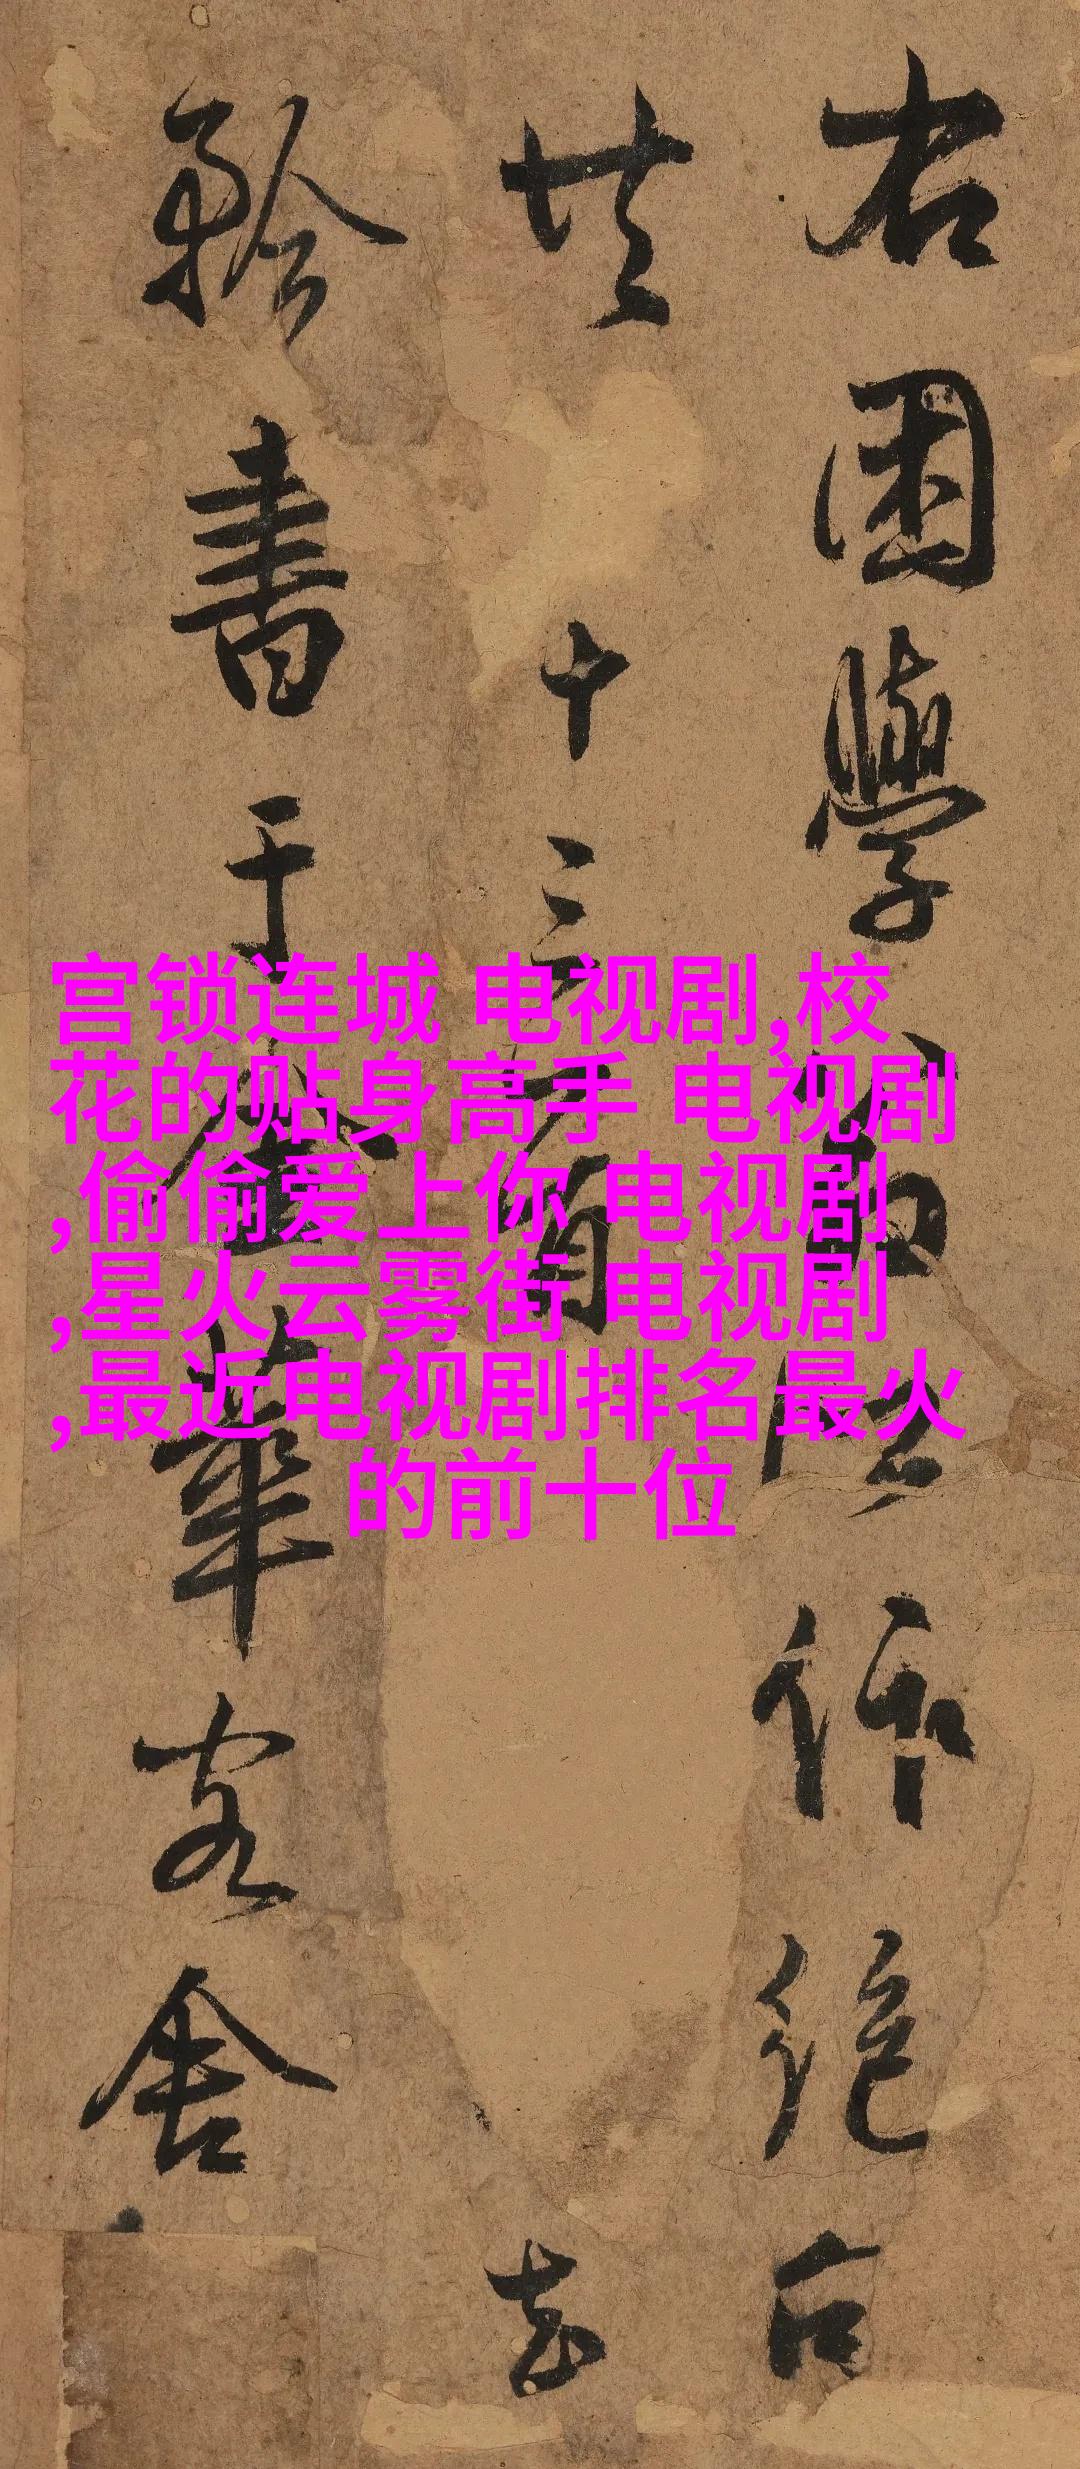 右困學作絶句
共十三首
書于金華客舍
宫锁连城 电视剧,校
花的贴身高手 电视剧
,偷偷爱上你 电视剧
,星火云雾街 电视剧
,最近电视剧排名最火
的前十位